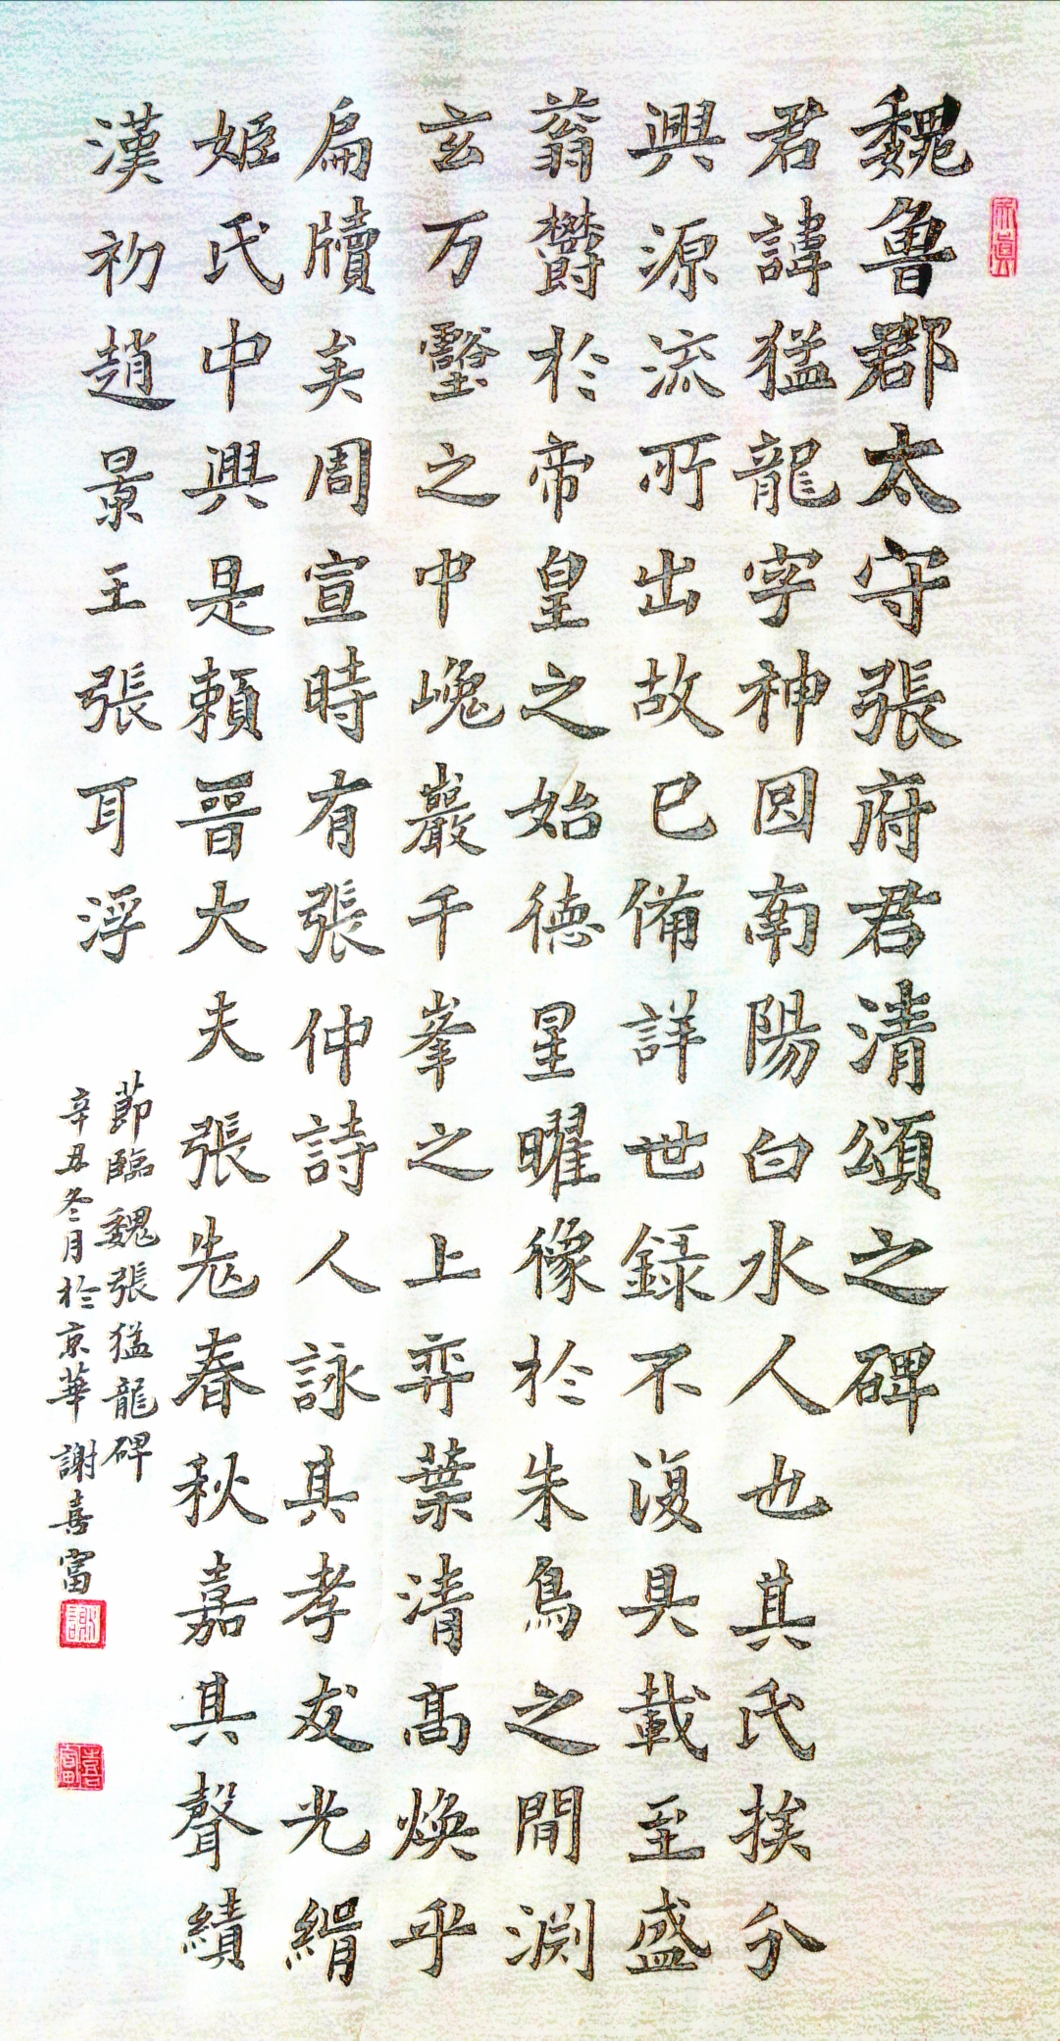 魏魯郡太守張府君清頌之碑
君諱猛龍字神囧南陽白水人也其氏挨分
興源流所出故已備詳世録不復具載至盛
蓊欝於帝皇之始德星曜像於朱鳥之間淵
玄万壑之中巉巖千峯之上弈葉清髙焕乎
扁牘矣周宣時有張仲詩人詠其孝友光緝
姬氏中興是賴晉大夫張老春秋嘉其聲績
漢初趙景王張耳浮
節臨魏張猛龍碑
辛丑冬月於京華謝喜富
謝
喜富